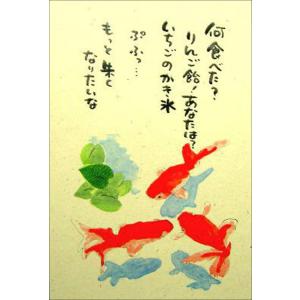 何食べた?
りんご飴!あなたは?
いちごのかき氷
ぷふっ…
もっと朱く
なりたいな